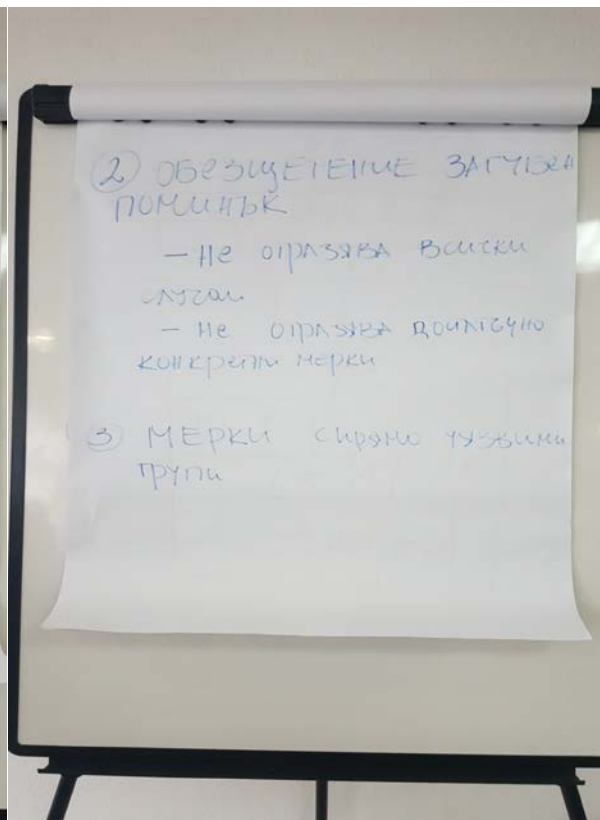 ② ОБЕЗЩЕТЕНИЕ ЗАГУБЕН
ПОМИНЪК
— Не отразява всички
случаи
— Не отразява достатъчно
конкретни мерки
③ МЕРКИ спрямо уязвими
групи